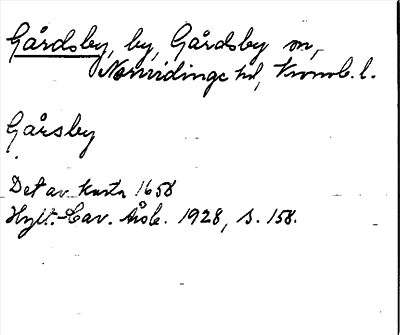 Gårdsby, by, Gårdsby sn,
Norrvidinge hd, Kronob. l.
Gårsby
Det av karta 1658
Hylt.-Cav. Årsb. 1928, s. 158.